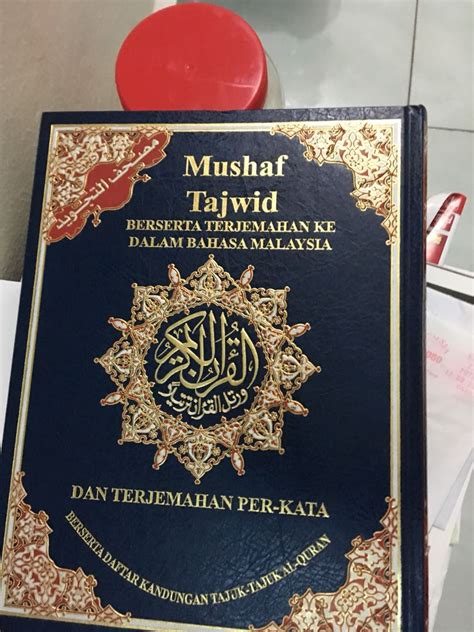 مصحف التجويد
Mushaf
Tajwid
BERSERTA TERJEMAHAN KE
DALAM BAHASA MALAYSIA
القرآن الكريم
ورتل القرآن ترتيلا
DAN TERJEMAHAN PER-KATA
BERSERTA DAFTAR KANDUNGAN TAJUK-TAJUK AL-QURAN